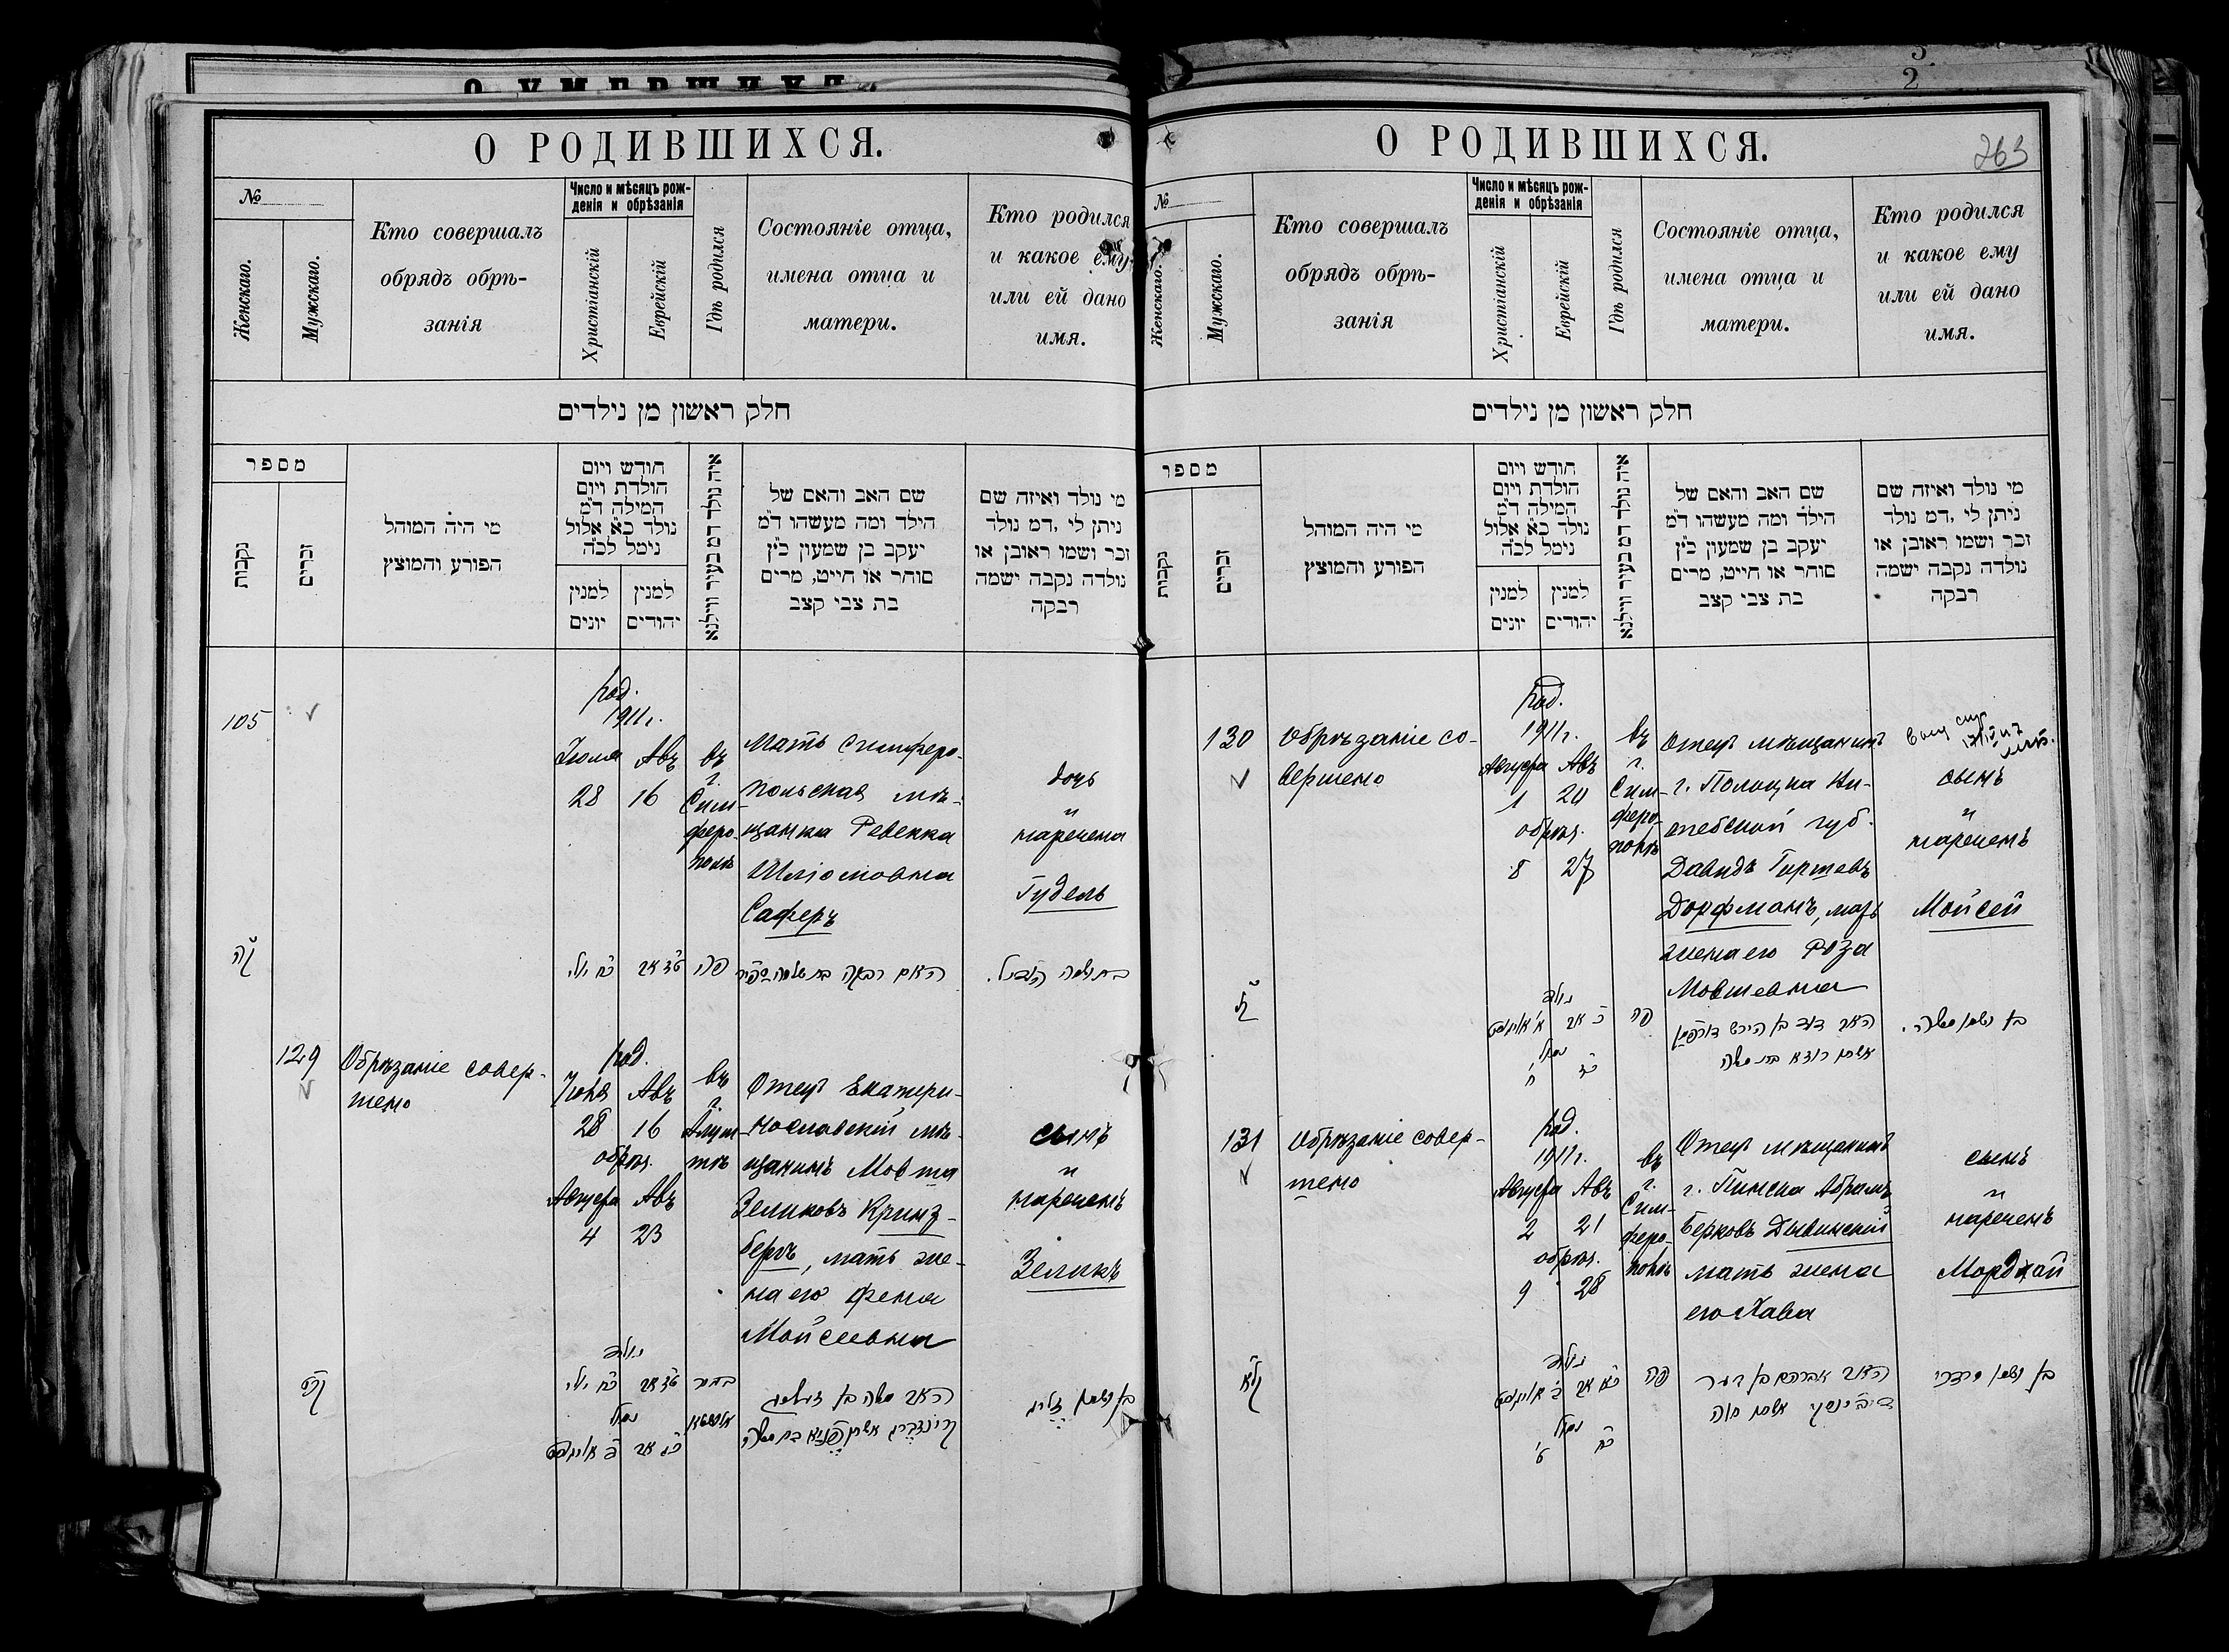 О УМЕРШИХЪ
О РОДИВШИХСЯ.
№
Женскаго.
Мужскаго.
Кто совершалъ
обрядъ обрѣ-
занія
Число и мѣсяцъ рож-
денія и обрѣзанія
Христіанскій
Еврейскій
Гдѣ родился
Состояніе отца,
имена отца и
матери.
Кто родился
и какое ему
или ей дано
имя.
חלק ראשון מן נילדים
מספר
נקבות
זכרים
מי היה המוהל
הפורע והמוצץ
חודש ויום
הולדת ויום
המילה ד״מ
נולד כ״א אלול
נימל לכ״ה
למנין
יונים
למנין
יהודים
איה נולד דמ בעיר ווילנא
שם האב והאם של
הילד ומה מעשהו ד״מ
יעקב בן שמעון כ״ץ
סוחר או חייט, מרים
בת צבי קצב
מי נולד ואיזה שם
ניתן לי, דמ נולד
זכר ושמו ראובן או
נולדה נקבה ישמה
רבקה
105
род.
1911 г.
Іюля Авъ
28 16
въ
г.
Сим-
феро-
полѣ
Мать симферо-
польская мѣ-
щанка Ревекка
Шліомовна
Саферъ
дочь
и
наречена
Гудель
קה
129
Обрѣзаніе совер-
шено
род.
Іюля Авъ
28 16
обрѣз.
Августа Авъ
4 23
въ
г.
Алуш-
тѣ
Отецъ Екатери-
нославскій мѣ-
щанинъ Мовша
Зеликовъ Кринз-
бергъ, мать же-
на его Феня
Мойсеевна
сынъ
и
нареченъ
Зеликъ
קכט
2
О РОДИВШИХСЯ.
263
№
Женскаго.
Мужскаго.
Кто совершалъ
обрядъ обрѣ-
занія
Число и мѣсяцъ рож-
денія и обрѣзанія
Христіанскій
Еврейскій
Гдѣ родился
Состояніе отца,
имена отца и
матери.
Кто родился
и какое ему
или ей дано
имя.
חלק ראשון מן נילדים
מספר
נקבות
זכרים
מי היה המוהל
הפורע והמוצץ
חודש ויום
הולדת ויום
המילה ד״מ
נולד כ״א אלול
נימל לכ״ה
למנין
יונים
למנין
יהודים
איה נולד דמ בעיר ווילנא
שם האב והאם של
הילד ומה מעשהו ד״מ
יעקב בן שמעון כ״ץ
סוחר או חייט, מרים
בת צבי קצב
מי נולד ואיזה שם
ניתן לי, דמ נולד
זכר ושמו ראובן או
נולדה נקבה ישמה
רבקה
130
Обрѣзаніе со-
вершено
род.
1911 г.
Августа Авъ
1 20
обрѣз.
8 27
въ
г.
Сим-
феро-
полѣ
Отецъ мѣщанинъ
г. Полоцка Ви-
тебской губ.
Давидъ Гиршевъ
Дорфманъ, мать
жена его Роза
Мовшевна
сынъ
и
нареченъ
Мойсей
קל
האב דוד בן הירש דורפמן
אשתו רוזא בת משה
בן ושמו משה.
131
Обрѣзаніе совер-
шено
род.
1911 г.
Августа Авъ
2 21
обрѣз.
9 28
въ
г.
Сим-
феро-
полѣ
Отецъ мѣщанинъ
г. Пинска Абрамъ
Берковъ Дывинскій
мать жена
его Хава
сынъ
и
нареченъ
Мордхай
קלא
בן ושמו מרדכי